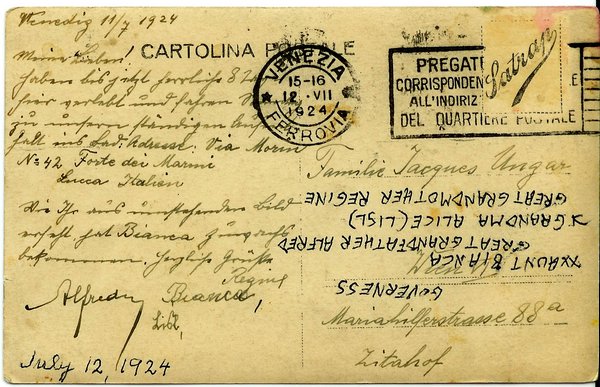 Venedig 11/7 1924
Meine Lieben!
CARTOLINA POSTALE
haben bis jetzt herrliche 8 Tage
hier verlebt und fahren
zu unserem ständigen
halt ins Bad. Adresse: Via Morin
No 42 Forte dei Marmi
Lucca Italien
Wie Ihr aus umstehendem Bild
erseht hat Bianca zuwachs
bekommen. Herzliche Grüße
Regine
Alfred Bianca,
Lisl,
July 12, 1924
VENEZIA
15-16
12 . VII
1924
FERROVIA
PREGATE
CORRISPONDEN
ALL'INDIRIZ
DEL QUARTIERE POSTALE
Satrap
Familie Jacques Ungar
Wien
Mariahilferstrasse 88a
Zitahof
GOVERNESS
XAUNT BIANCA
GREAT GRANDFATHER ALFRED
GRANDMA ALICE (LISL)
GREATGRANDMOTHER REGINE